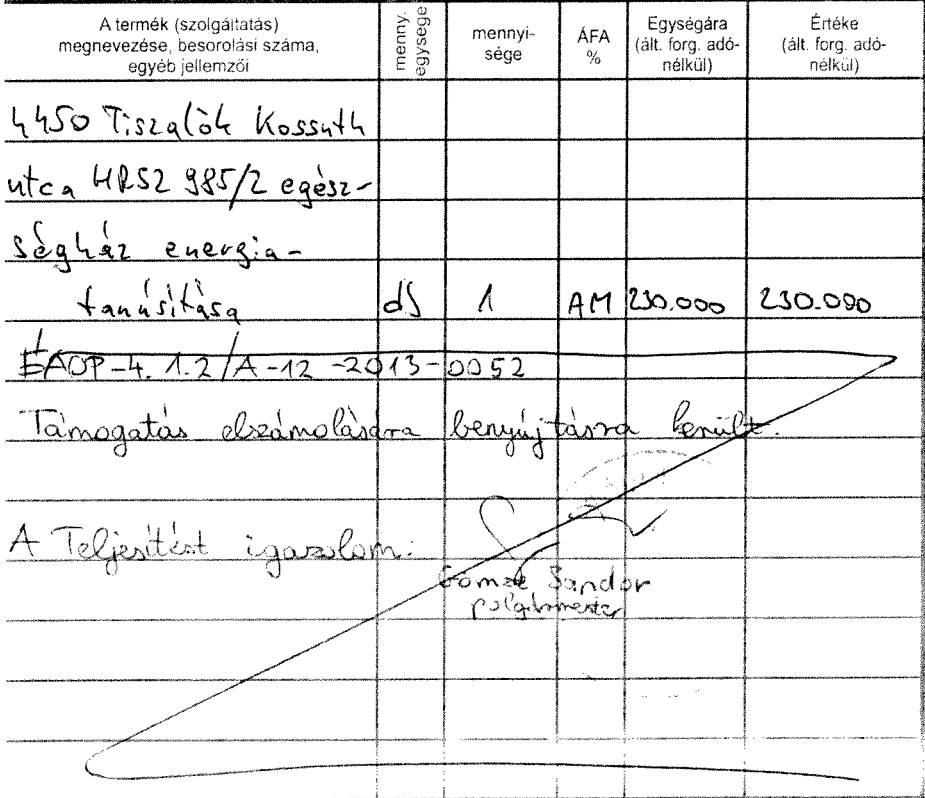 A termék (szolgáltatás) megnevezése, besorolási száma, egyéb jellemzői | menny. egysége | mennyi-sége | ÁFA % | Egységára (ált. forg. adó-nélkül) | Értéke (ált. forg. adó-nélkül)
4450 Tiszalök Kossuth
utca HRSZ 985/2 egész-
ségház energia-
tanúsítása db 1 AM 230.000 230.000
ÉAOP-4.1.2/A-12-2013-0052
Támogatás elszámolására benyújtásra került.
A Teljesítést igazolom:
Gömze Sándor
polgármester